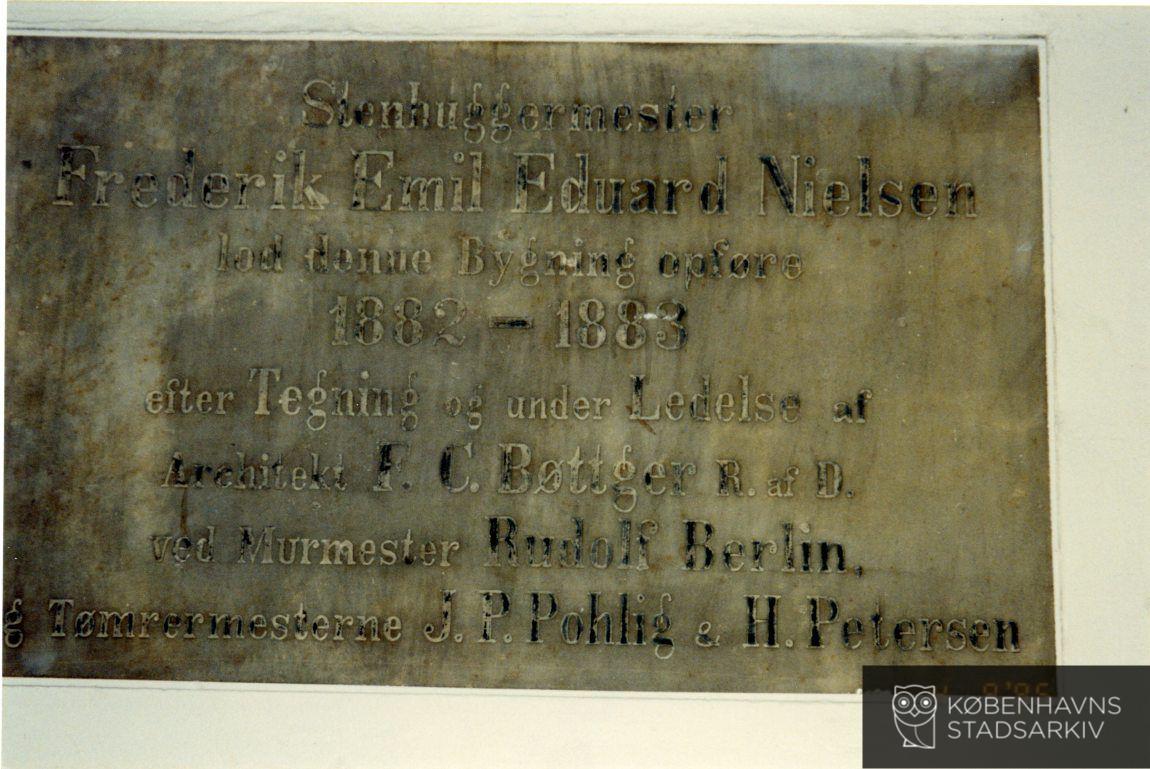 Stenhuggermester
Frederik Emil Eduard Nielsen
lod denne Bygning opføre
1882 – 1883
efter Tegning og under Ledelse af
Architekt F. C. Bøttger R. af D.
ved Murmester Rudolf Berlin,
og Tømrermesterne J. P. Pohlig & H. Petersen
KØBENHAVNS
STADSARKIV